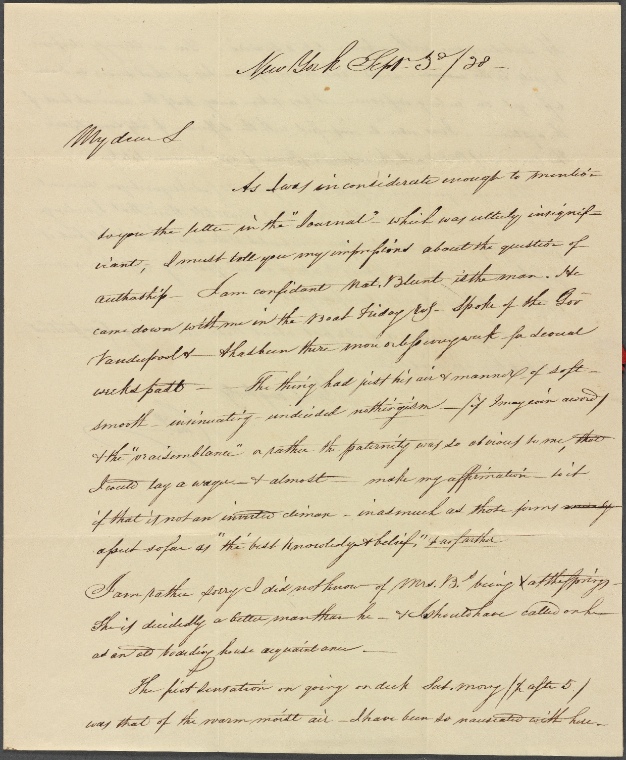 New York Sept. 3d/28 –
My dear S
As I was inconsiderate enough to mention
to you the letter in the "Journal" – which was utterly insignif-
icant, I must tell you my impressions about the question of
authoship – I am confidant Nat. Blunt is the man. He
came down with me in the Boat Friday – Spoke of the Gov
Vanderpool & – & has been there more or less every week for several
weeks past – The thing had just his air & manner of soft –
smooth – insinuating – undecided nothingism – (if I may coin a word)
& the "vraisemblance" or rather the paternity was so obvious to me, that
I would lay a wager – & almost – make my affirmation – to it
if that is not an inverted climax – inasmuch as those forms
affect so far as "the best knowledge & belief," & no farther
I am rather sorry I did not know of Mrs. B's being at the Springs –
She is decidedly a better man than he – & I should have called on her
as an old boarding house acquaintance –
The first sensation on going on deck Sat. morng (½ after 5)
was that of the warm moist air – I have been so nauseated with here –